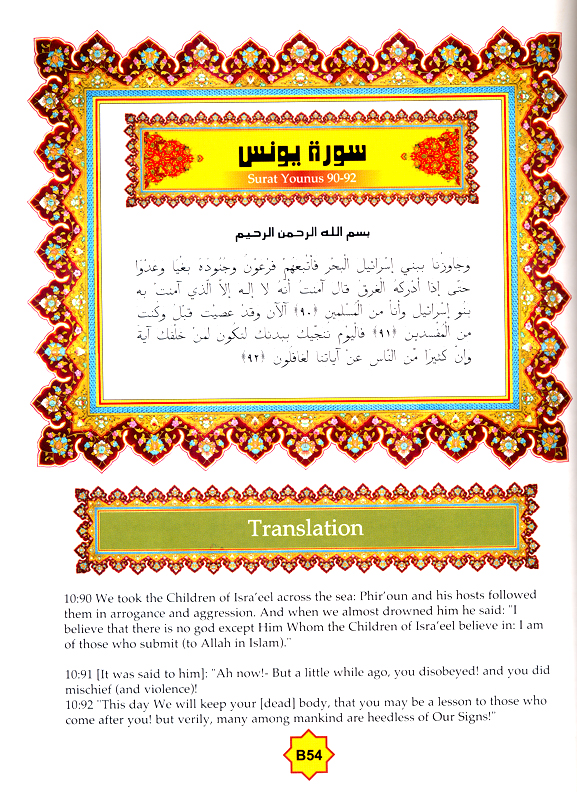 سورة يونس
Surat Younus 90-92
بسم الله الرحمن الرحيم
وجاوزنا ببني إسرائيل البحر فأتبعهم فرعون وجنوده بغيا وعدوا
حتى إذا أدركه الغرق قال آمنت أنه لا إله إلا الذي آمنت به
بنو إسرائيل وأنا من المسلمين ﴿٩٠﴾ آلآن وقد عصيت قبل وكنت
من المفسدين ﴿٩١﴾ فاليوم ننجيك ببدنك لتكون لمن خلفك آية
وإن كثيرا من الناس عن آياتنا لغافلون ﴿٩٢﴾
Translation
10:90 We took the Children of Isra'eel across the sea: Phir'oun and his hosts followed
them in arrogance and aggression. And when we almost drowned him he said: "I
believe that there is no god except Him Whom the Children of Isra'eel believe in: I am
of those who submit (to Allah in Islam)."
10:91 [It was said to him]: "Ah now!- But a little while ago, you disobeyed! and you did
mischief (and violence)!
10:92 "This day We will keep your [dead] body, that you may be a lesson to those who
come after you! but verily, many among mankind are heedless of Our Signs!"
B54